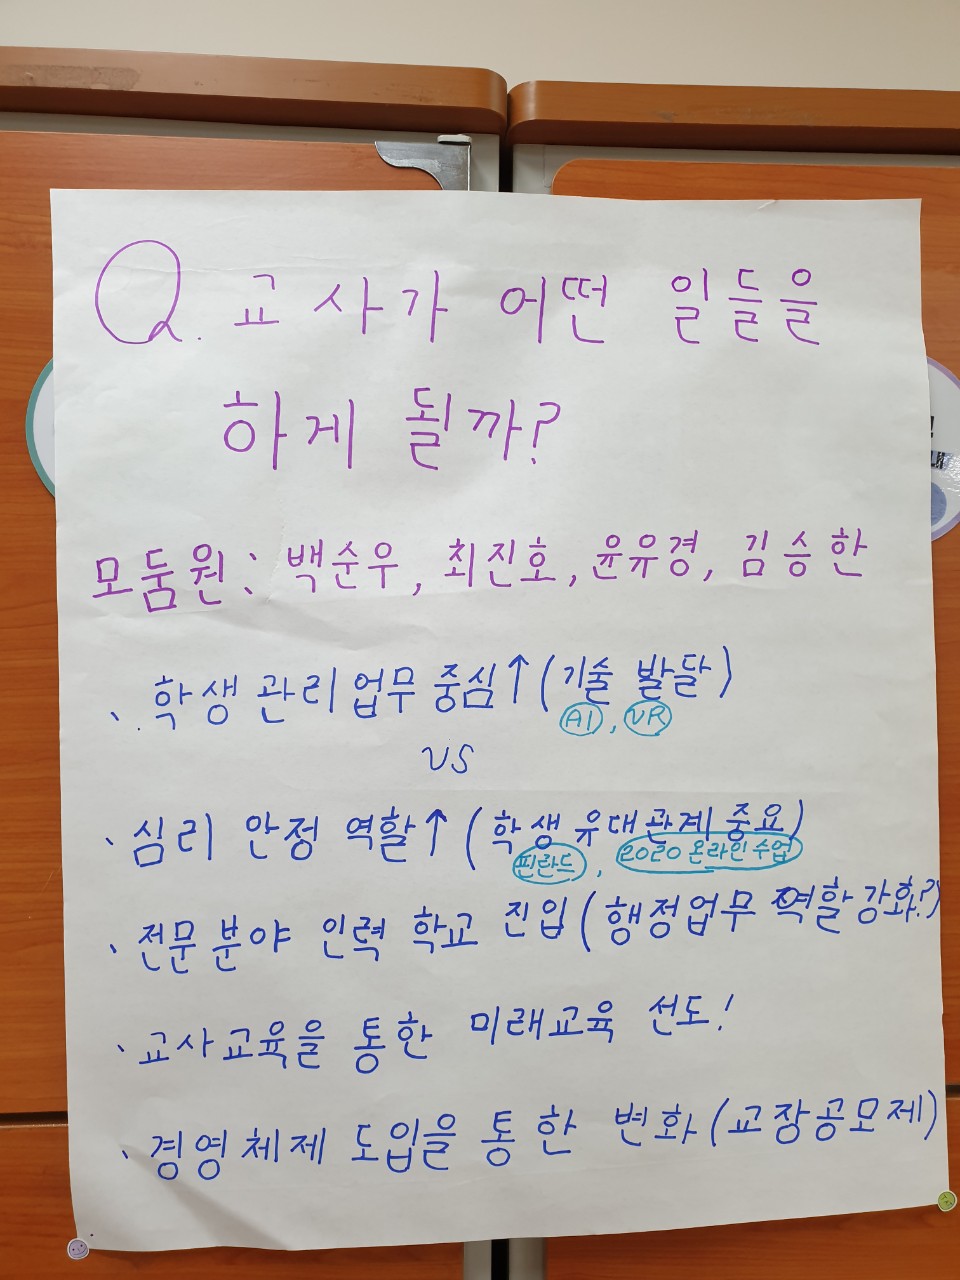 Q. 교사가 어떤 일들을
하게 될까?
모둠원: 백순우, 최진호, 윤유경, 김승한
、학생관리업무 중심↑(기술 발달)
AI, VR
VS
、심리 안정 역할↑(학생유대관계중요)
핀란드, 2020 온라인수업
、전문분야 인력 학교 진입(행정업무 역할강화?)
、교사교육을 통한 미래교육 선도!
、경영체제 도입을 통한 변화(교장공모제)